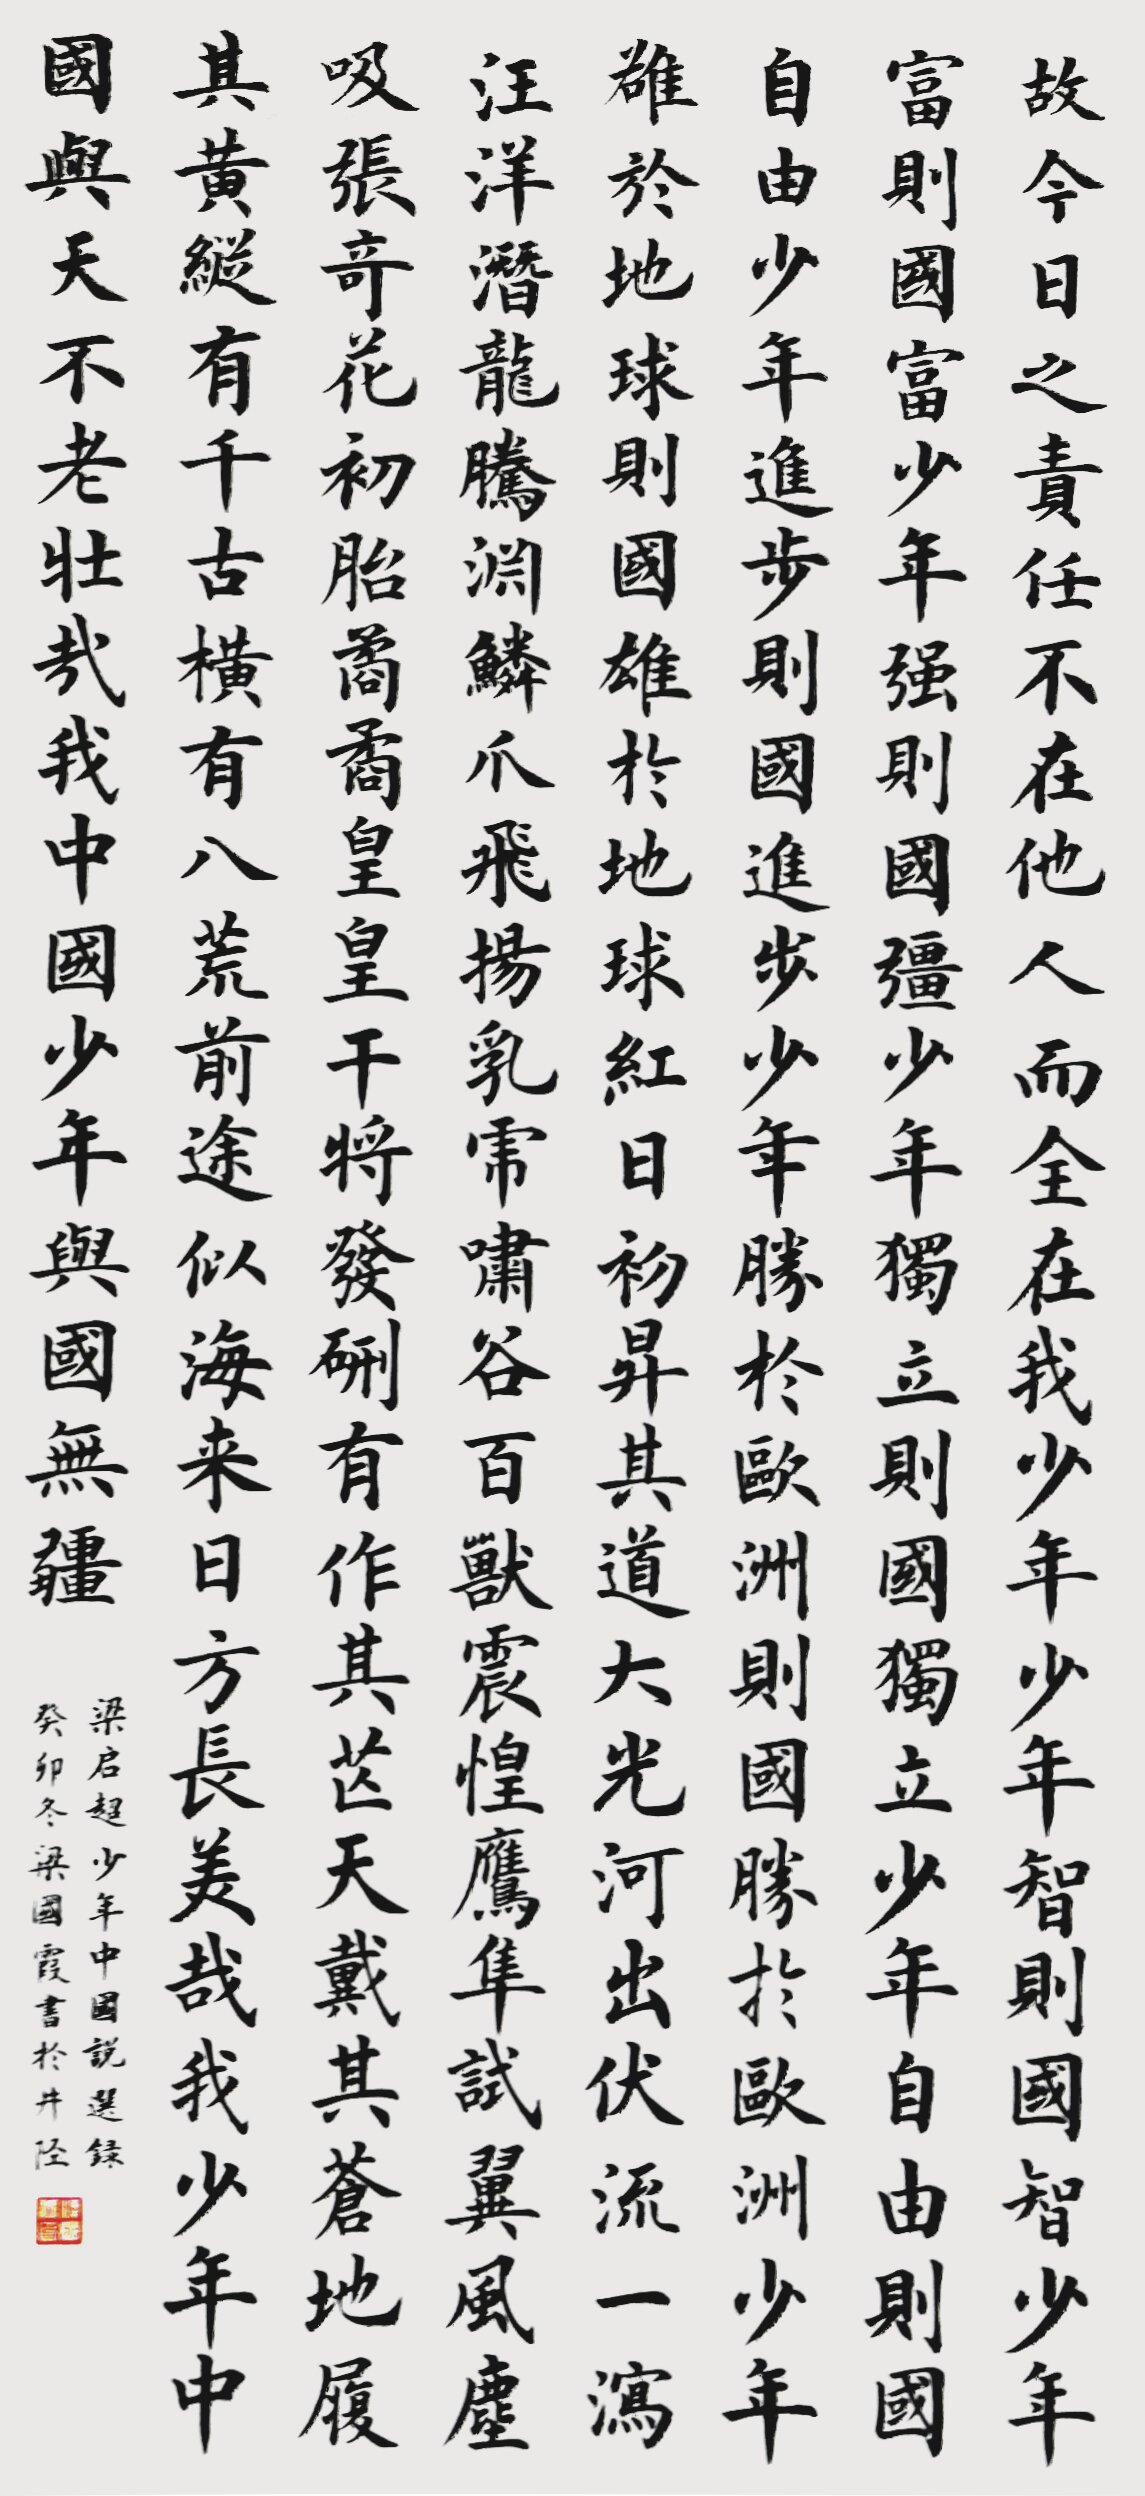 故今日之責任不在他人而全在我少年少年智則國智少年
富則國富少年强則國彊少年獨立則國獨立少年自由則國
自由少年進步則國進步少年勝於歐洲則國勝於歐洲少年
雄於地球則國雄於地球紅日初昇其道大光河出伏流一瀉
汪洋潛龍騰淵鱗爪飛揚乳虎嘯谷百獸震惶鷹隼試翼風塵
吸張奇花初胎矞矞皇皇干将發硎有作其芒天戴其蒼地履
其黄縱有千古橫有八荒前途似海来日方長美哉我少年中
國與天不老壯哉我中國少年與國無疆
梁启超少年中國説選録
癸卯冬梁國霞書於井陘